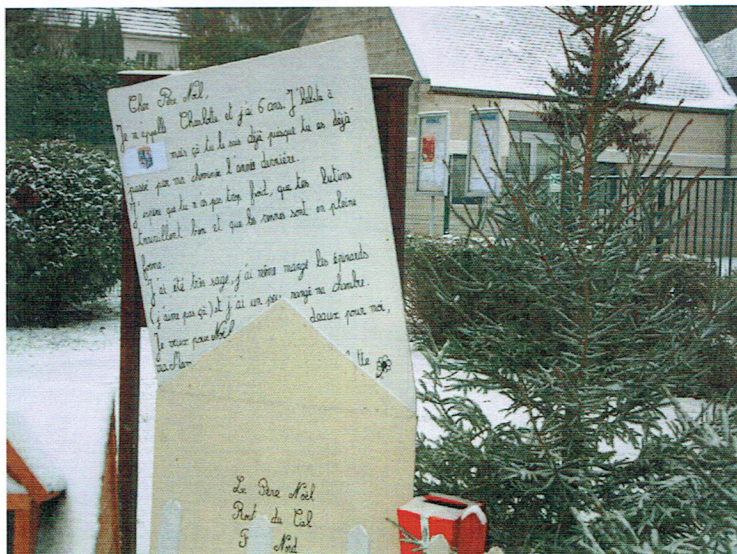 Cher Père Noël,
Je m'appelle Charlotte et j'ai 6 ans. J'habite à
mais ça tu le sais déjà puisque tu es déjà
passé par ma cheminée l'année dernière.
J'espère que tu n'as pas trop froid, que tes lutins
travaillent bien et que les rennes sont en pleine
forme.
J'ai été très sage, j'ai même mangé les épinards
(j'aime pas ça) et j'ai un peu rangé ma chambre.
Je veux pour Noël deaux pour moi,
ma Mam tte
Le Père Noël
Nord